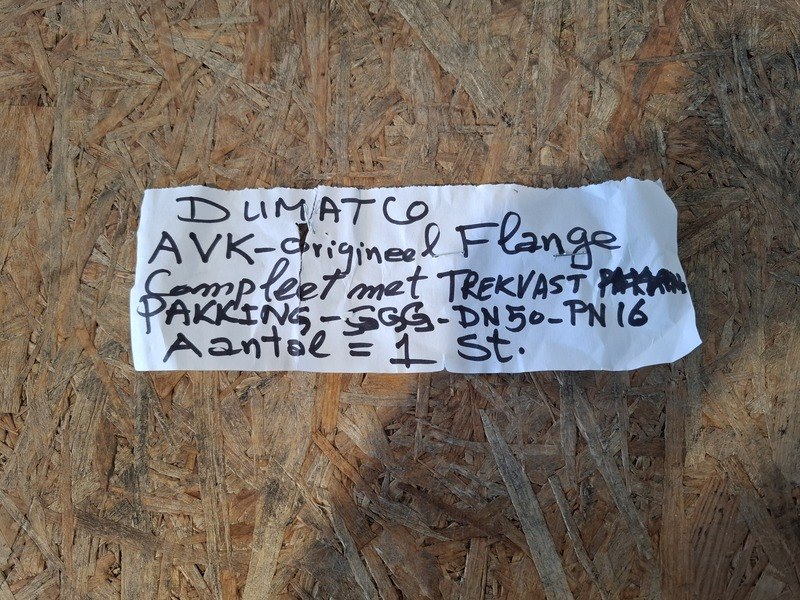 DUMATCO
AVK-origineel Flange
Compleet met TREKVAST
PAKKING-GGG-DN50-PN16
Aantal = 1 St.